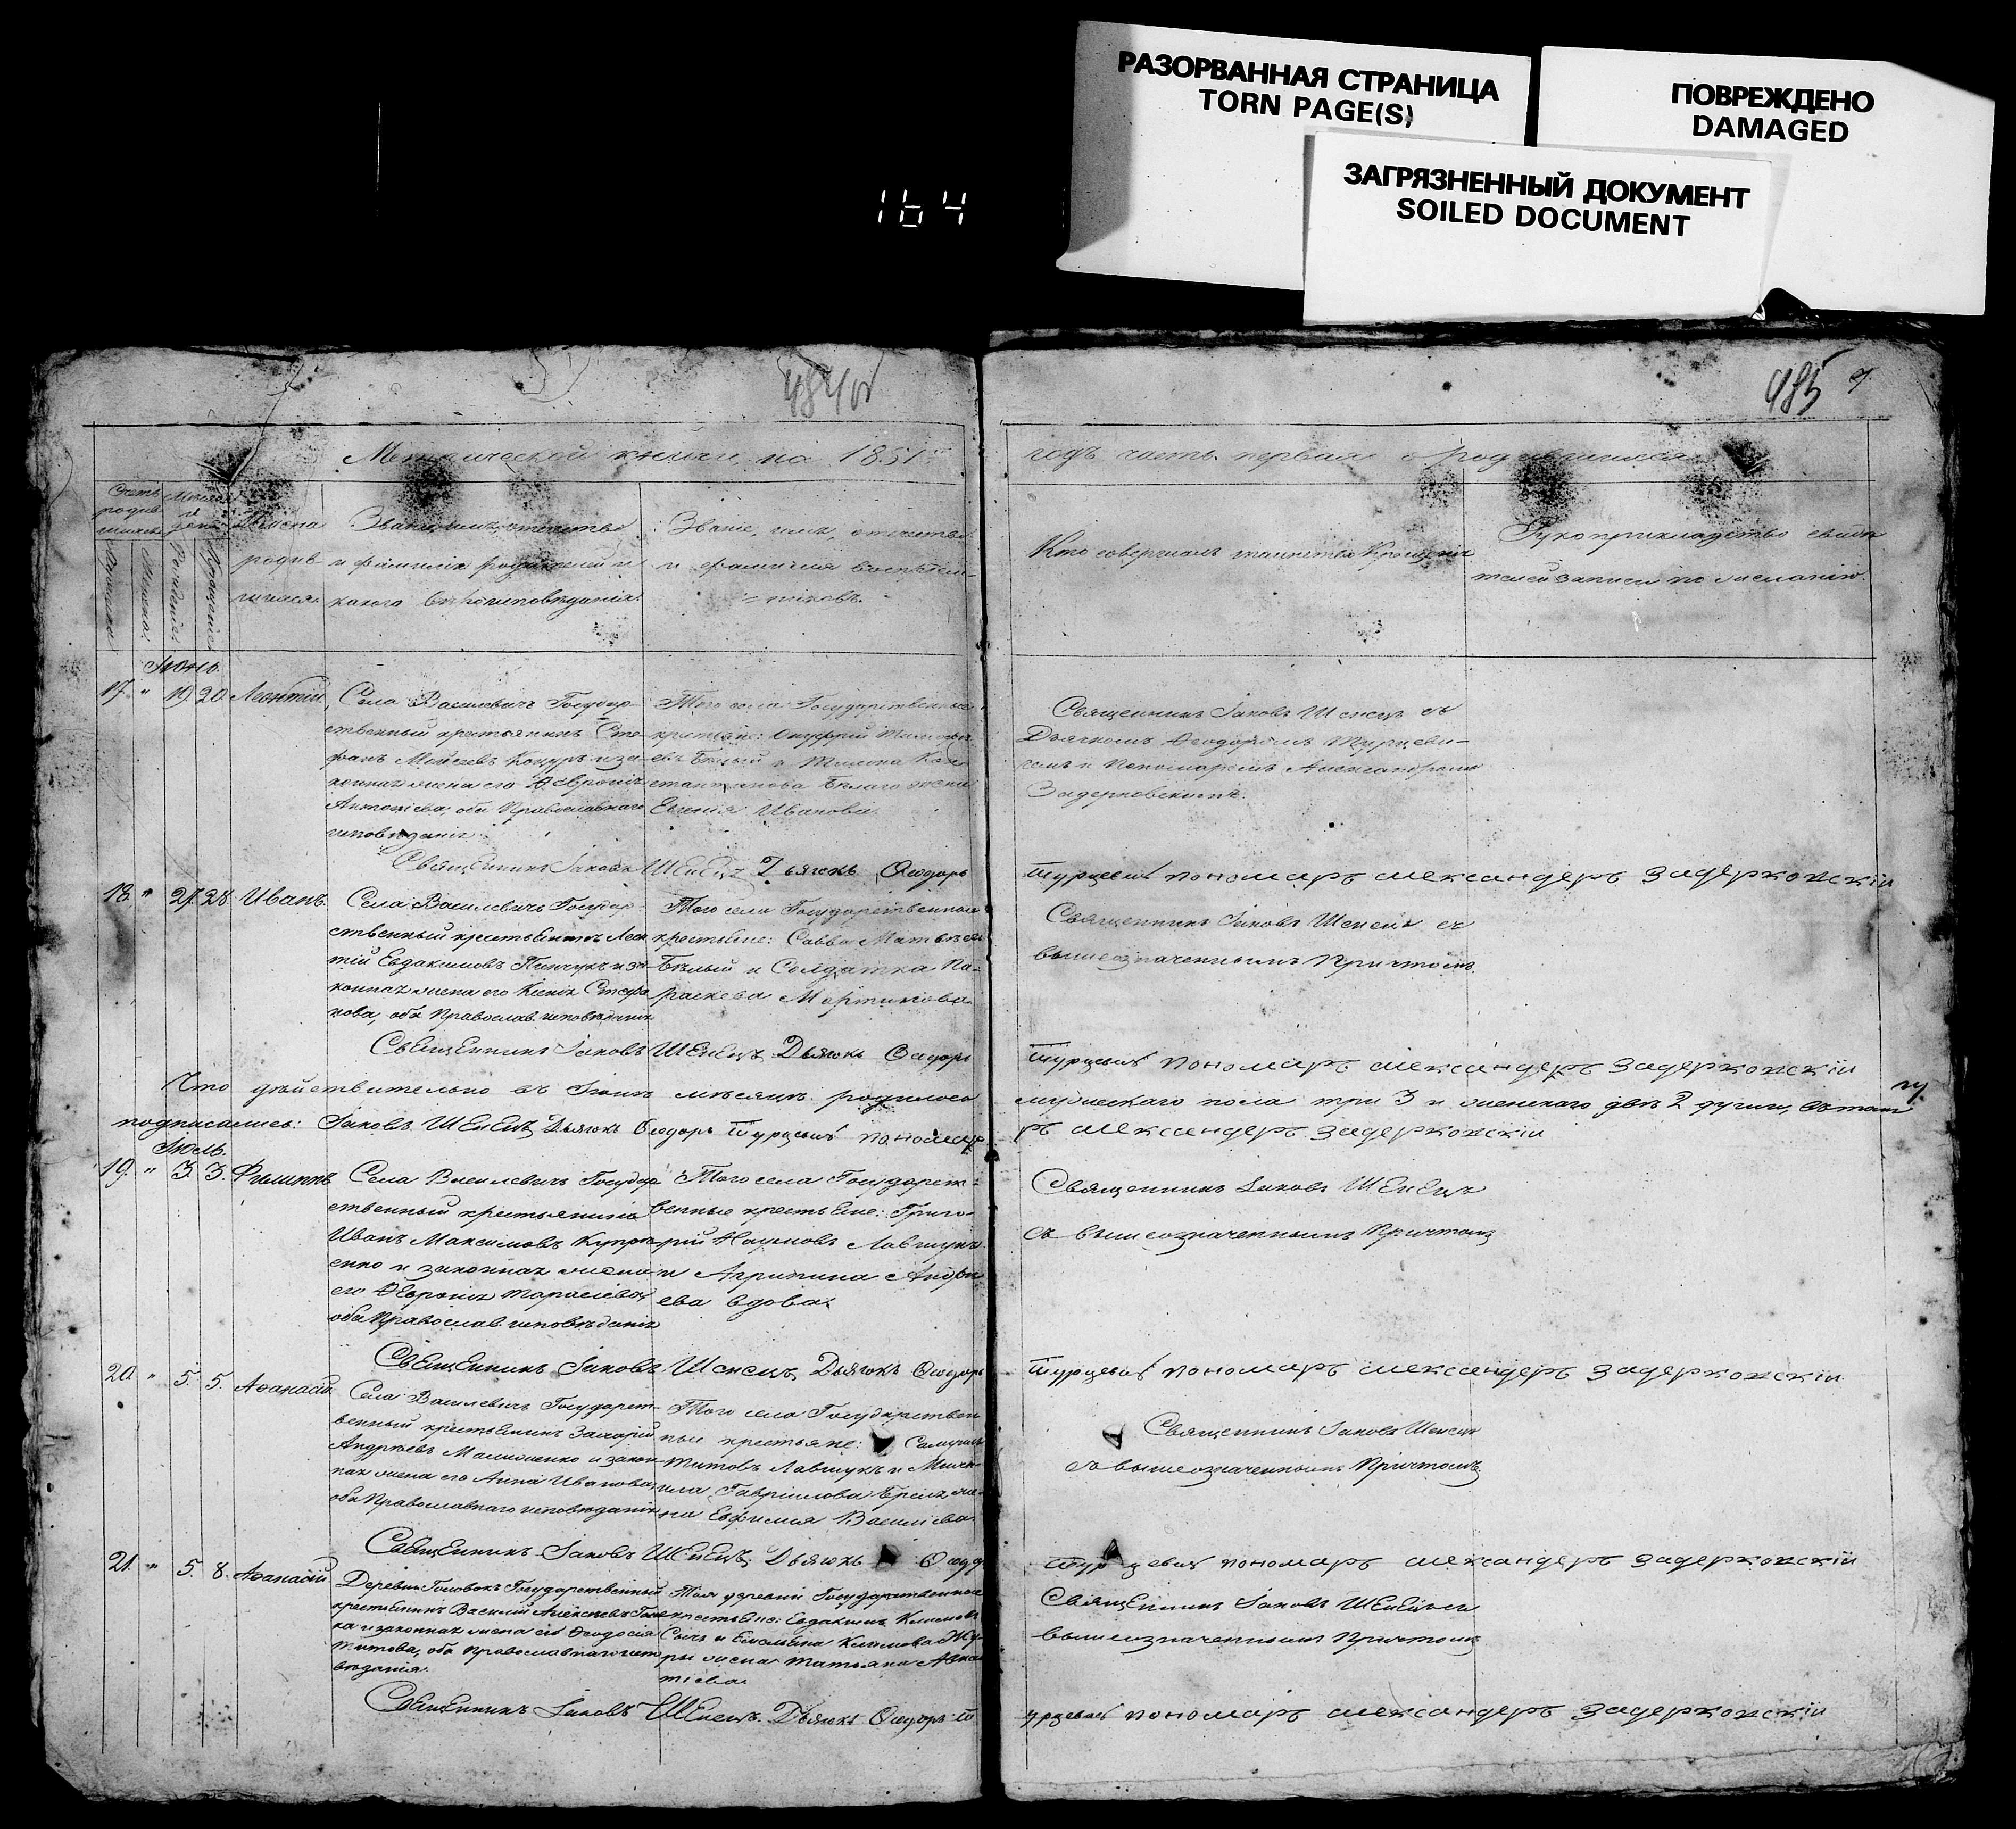 РАЗОРВАННАЯ СТРАНИЦА
TORN PAGE(S)
ПОВРЕЖДЕНО
DAMAGED
ЗАГРЯЗНЕННЫЙ ДОКУМЕНТ
SOILED DOCUMENT
164
484об
485
Метрической книги, на 1851й
годъ часть первая о родившихся
Счетъ родившихся
Мѣсяцъ и день
Имена
родив
шихся.
Званіе, имя, отчество
и фамилія родителей и
какого вѣроисповѣданія.
Званіе, имя, отчество
и фамилія воспріем-
=никовъ.
Кто совершалъ таинство Крещенія
Рукоприкладство свидѣ
телей записи по желанію.
Рожденія
Крещенія
Іюнь.
17. " 19 20 Леонтій.
Села Василевичъ Государ-
ственный крестьянинъ Сте-
фанъ Моисеевъ Кокуръ и за-
конная жена его Февронія
Антоніева, оба Православнаго
исповѣданія
Того села Государственные
крестьяне: Онуфрій
евъ Бѣлый и
Бѣлаго жена
Евгенія Иванова.
Священникъ Іаковъ Шенецъ съ
Дьячкомъ Ѳеодоромъ Турцеви-
чемъ и Пономаремъ Александромъ
Задерковскимъ.
Священникъ Іаковъ Шенецъ Дьячокъ Ѳеодоръ Турцевичъ пономаръ александеръ Задерковскій
18. " 27. 28 Иванъ.
Села Василевичъ Государ-
ственный крестьянинъ Леон
тій Евдокимовъ Пинчукъ и за-
конная жена его Ксенія Стефа
нова, оба Православ. исповѣданія
Того села Государственные
крестьяне: Савва Матвѣевъ
Бѣлый и Солдатка Па-
раскева Мартинова
Священникъ Іаковъ Шенецъ съ
вышеозначеннымъ Причтомъ.
Священникъ Іаковъ Шенецъ Дьячокъ Ѳеодоръ Турцевичъ пономаръ александеръ Задерковскій
Что дѣйствительно въ Іюнѣ мѣсяцѣ родилось мужескаго пола три 3 и женскаго двѣ 2 души, въ томъ
подписались: Іаковъ Шенецъ Дьячокъ Ѳеодоръ Турцевичъ пономаръ александеръ Задерковскій
Іюль.
19. " 3. 3. Филиппъ
Села Василевичъ Государ
ственный крестьянинъ
Иванъ Максимовъ Купрі
енко и законная жена
его Февронія Тарасіева
оба Православ. исповѣданія
Того села Государст-
венные крестьяне: Григо-
рій Наумовъ Лавшукъ
и Агрипина Андре
ева вдова.
Священникъ Іаковъ Шенецъ
съ вышеозначеннымъ Причтомъ
Священникъ Іаковъ Шенецъ Дьячокъ Ѳеодоръ Турцевичъ пономаръ александеръ Задерковскій
20. " 5. 5. Аѳанасій
Села Василевичъ Государст-
венный крестьянинъ Захарій
Андреевъ Малюженко и закон-
ная жена его Анна Иванова,
оба Православнаго исповѣданія
Того села Государствен
ные крестьяне: Самуилъ
Титовъ Лавшукъ и Миха-
ила Гавріилова жe-
на Евфимія Василіева.
Священникъ Іаковъ Шенецъ
съ вышеозначеннымъ Причтомъ
Священникъ Іаковъ Шенецъ Дьячокъ Ѳеод Турцевичъ пономаръ александеръ Задерковскій
21. " 5. 8. Аѳанасій
Деревни Головокъ Государственный
крестьянинъ Василій Алексѣевъ
и законная жена его Ѳеодосія
Титова, оба Православнаго испо
вѣданія.
Тоя деревни Государственные
крестьяне: Евдокимъ Климовъ
Сычъ и Емельяна Климова
жена Татьяна
Священникъ Іаковъ Шенецъ съ
вышеозначеннымъ Причтомъ
Священникъ Іаковъ Шенецъ. Дьячокъ Ѳеодоръ Турцевичъ пономаръ александеръ Задерковскій